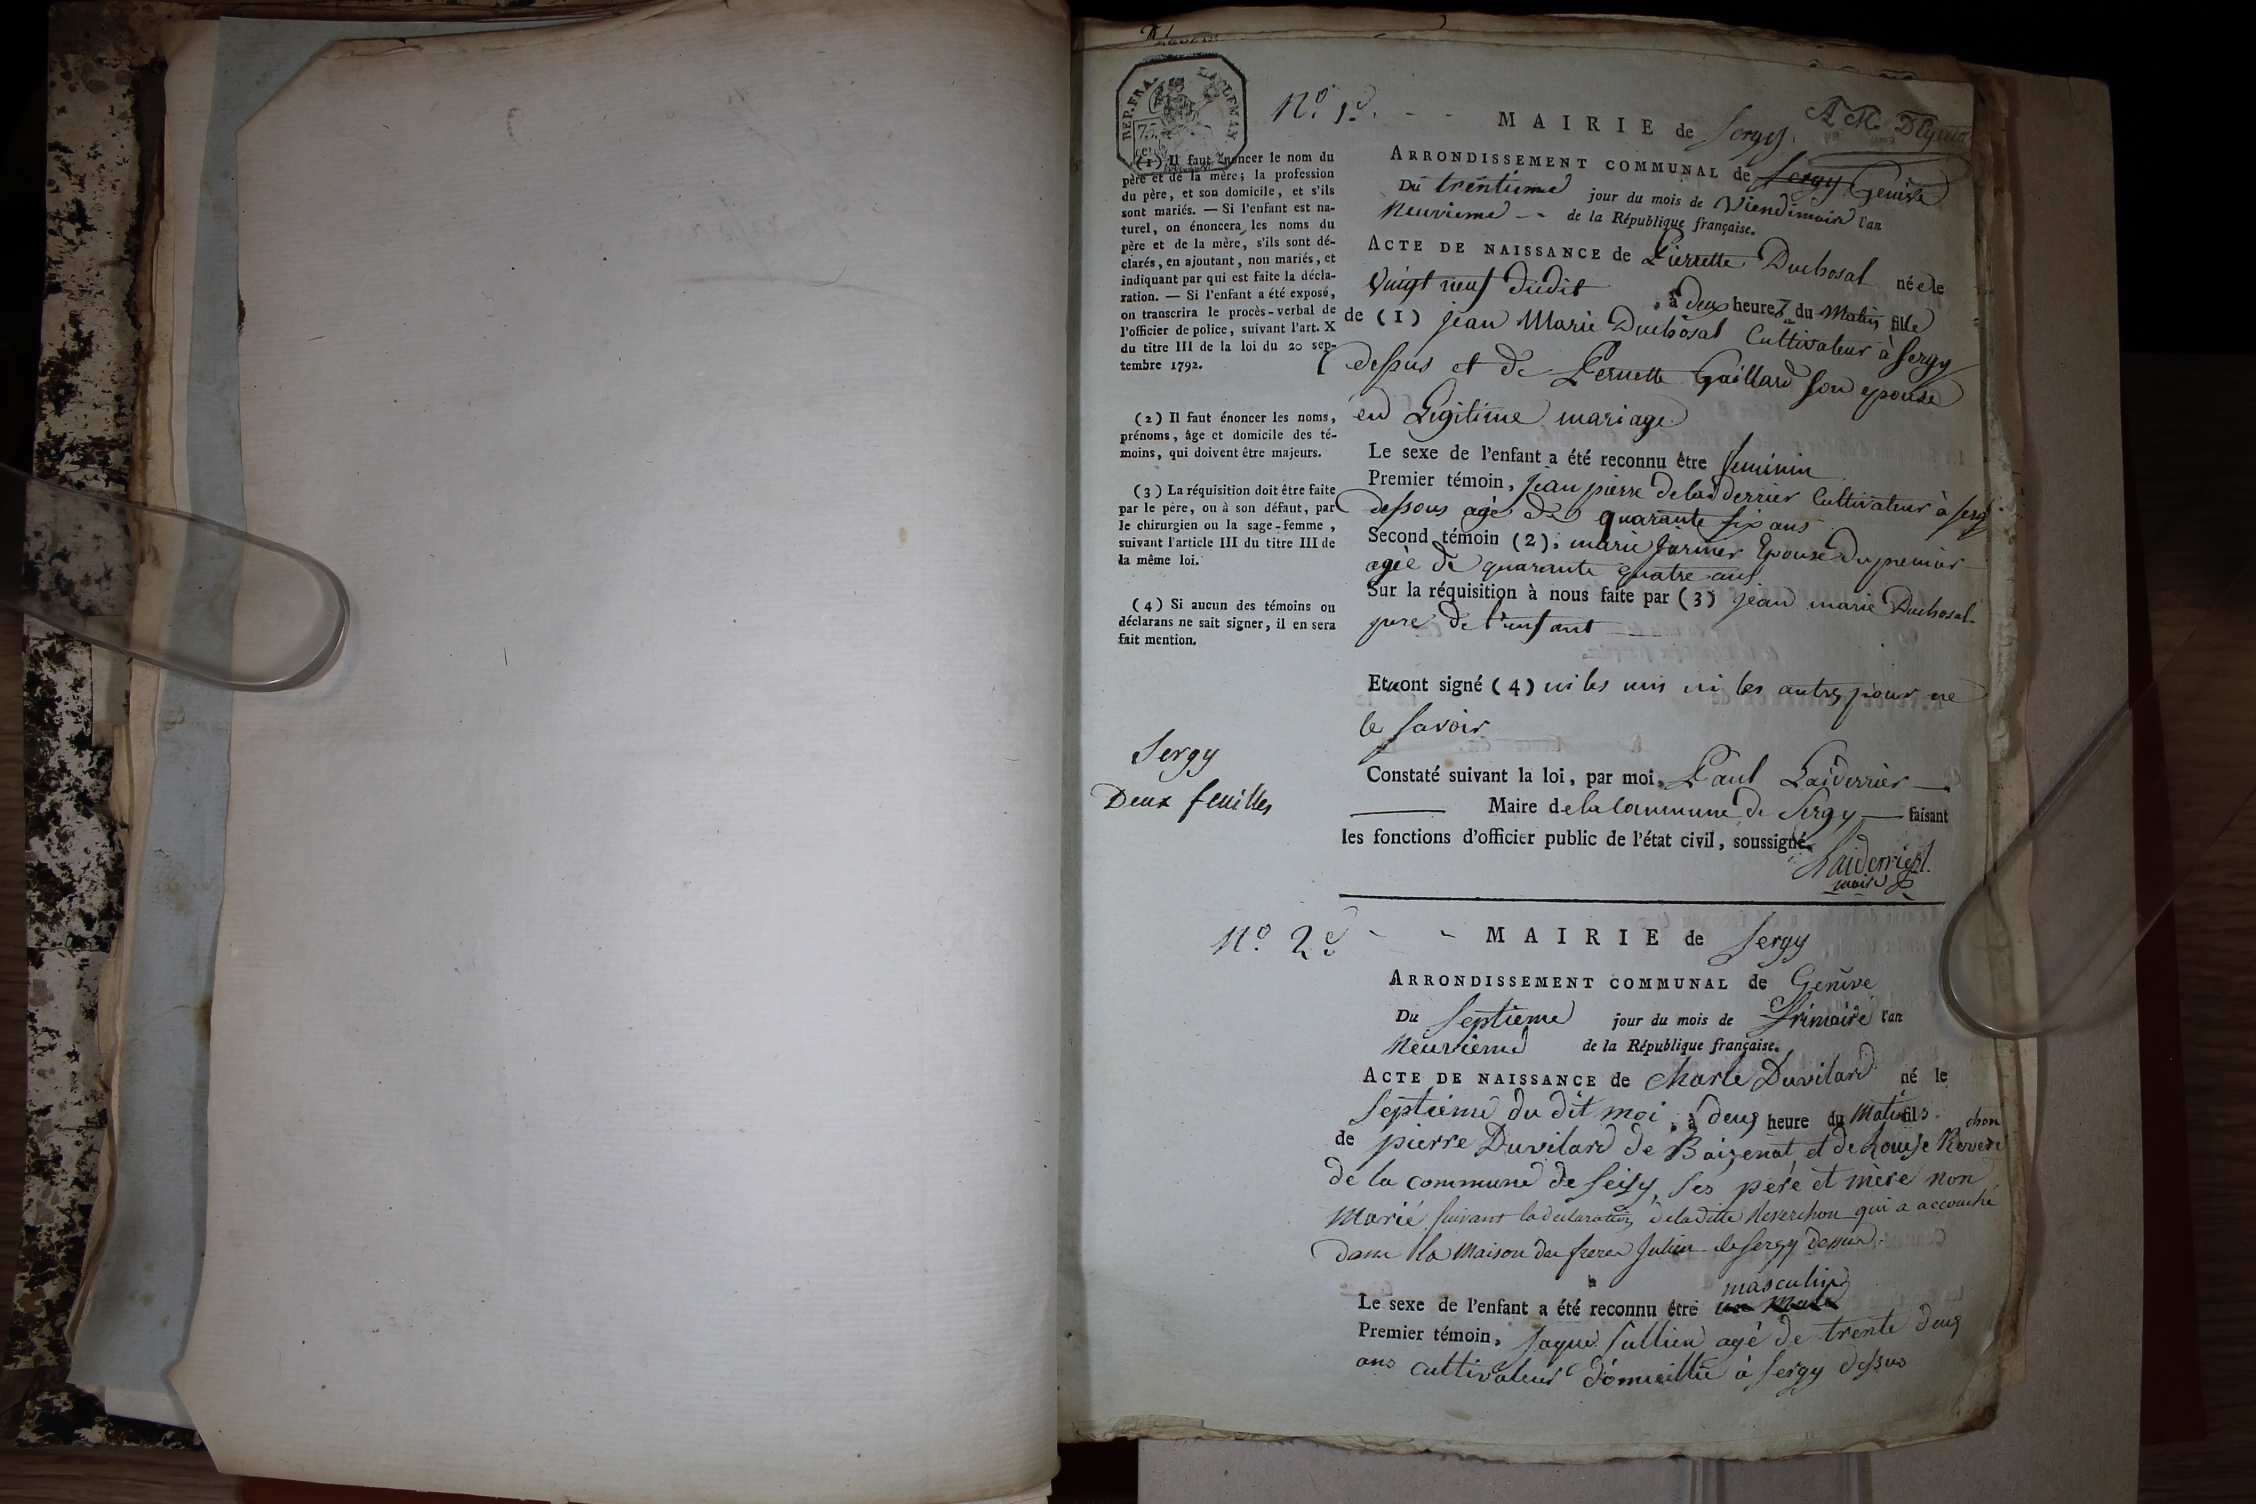 REP. FRA.
75
cen
N.º 1.er
MAIRIE de Sergy
ARRONDISSEMENT COMMUNAL de Sergy Genève
Du trentieme jour du mois de Viendimaire l'an
Neuvieme de la République française.
ACTE DE NAISSANCE de Pierrette Duchosal née le
Vingt neuf dudit, à deux heures du Matin fille
de (1) jean Marie Duchosal Cultivateur à Sergy
dessus et de Pernette Gaillard son epouse
en Legitime mariage
Le sexe de l'enfant a été reconnu être feminin
Premier témoin, jean pierre delaiderrier Cultivateur à Sergy
dessous agé de quarante six ans
Second témoin (2), marie Epouse du premier
agée de quarante quatre ans
Sur la réquisition à nous faite par (3) jean marie Duchosal
pere de l'enfant
Et n'ont signé (4) ni les uns ni les autres pour ne
le savoir
Constaté suivant la loi, par moi, Paul Laiderrier
Maire de la Commune de Sergy faisant
les fonctions d'officier public de l'état civil, soussigné.
Laiderrier
maire
(1) Il faut énoncer le nom du
père et de la mère; la profession
du père, et son domicile, et s'ils
sont mariés. — Si l'enfant est na-
turel, on énoncera les noms du
père et de la mère, s'ils sont dé-
clarés, en ajoutant, non mariés, et
indiquant par qui est faite la décla-
ration. — Si l'enfant a été exposé,
on transcrira le procès-verbal de
l'officier de police, suivant l'art. X
du titre III de la loi du 20 sep-
tembre 1792.
(2) Il faut énoncer les noms,
prénoms, âge et domicile des té-
moins, qui doivent être majeurs.
(3) La réquisition doit être faite
par le père, ou à son défaut, par
le chirurgien ou la sage-femme,
suivant l'article III du titre III de
la même loi.
(4) Si aucun des témoins ou
déclarans ne sait signer, il en sera
fait mention.
Sergy
Deux feuilles
N.º 2.e
MAIRIE de Sergy
ARRONDISSEMENT COMMUNAL de Genève
Du Septieme jour du mois de frimaire l'an
Neuvieme de la République française.
ACTE DE NAISSANCE de Charle Duvilard né le
Septieme du dit moi, à deus heure du Matin fils
de pierre Duvilard de Baizenat et de Louise Reverchon
de la commune de Seisy, ses pere et mère non
Marié suivant la declaration de ladite Reverchon qui a accouché
dans la Maison des freres Julien de Sergy dessus
Le sexe de l'enfant a été reconnu être masculin
Premier témoin, Jaque Jullien agé de trente deus
ans cultivateur domicillié à Sergy dessus